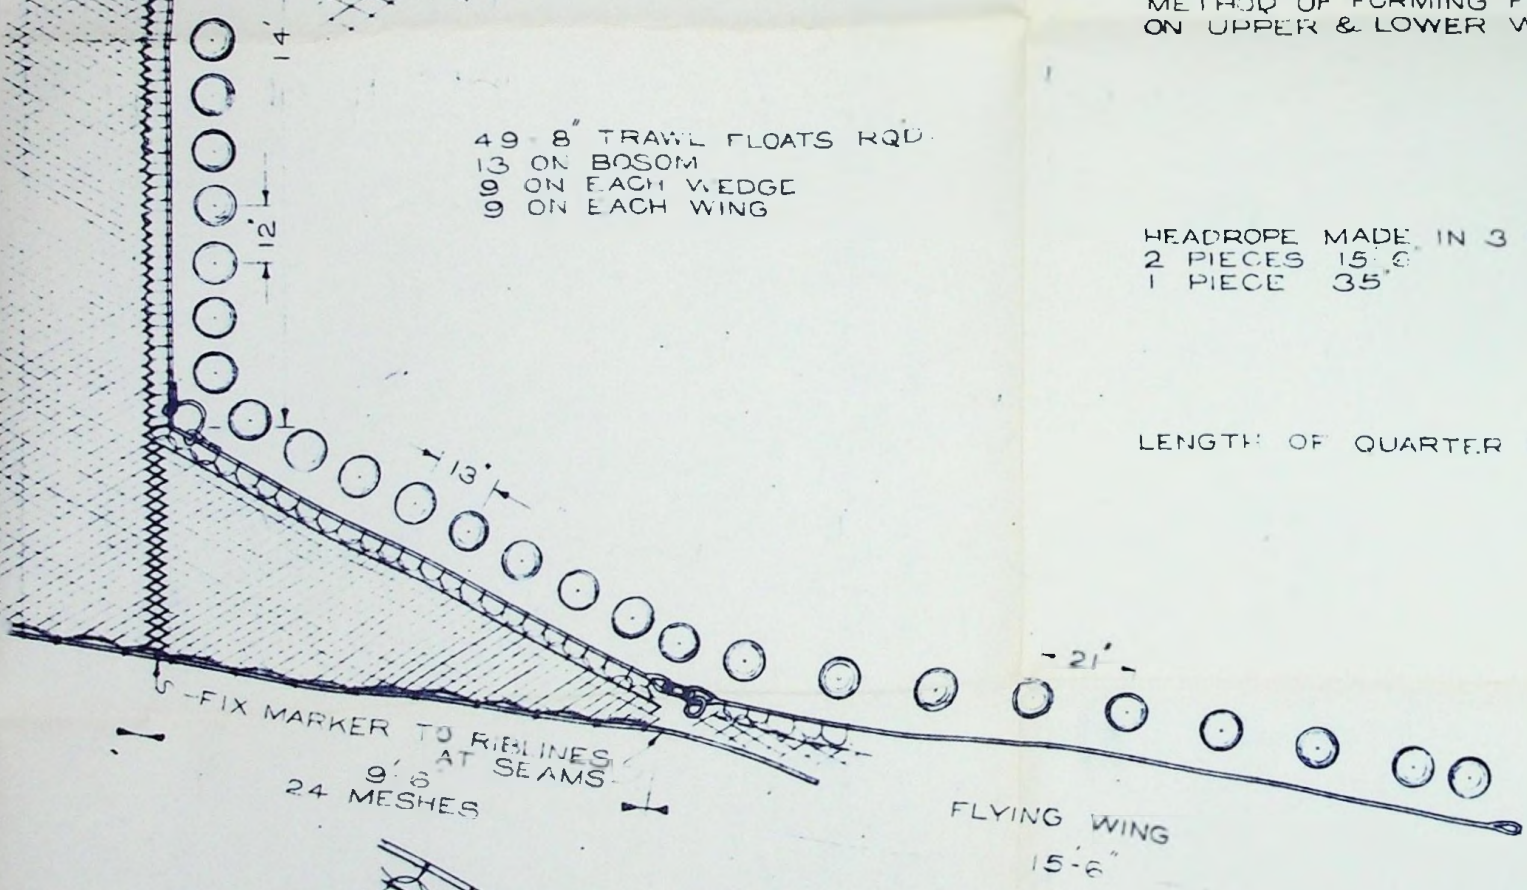 METHOD OF FORMING
ON UPPER & LOWER
14'
49 - 8" TRAWL FLOATS RQD.
13 ON BOSOM
9 ON EACH WEDGE
9 ON EACH WING
12"
HEADROPE MADE IN 3
2 PIECES 15'6
1 PIECE 35'
LENGTH OF QUARTER
13"
21"
FIX MARKER TO RIBLINES
AT SEAMS
9'-6
24 MESHES
FLYING WING
15'-6"